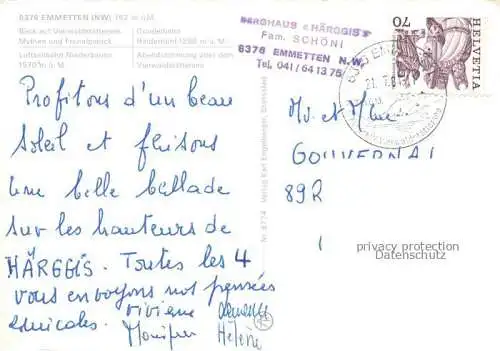 6376 EMMETTEN (NW) 762 m ü.M.
Blick auf Vierwaldstättersee,
Mythen und Fronalpstock
Luftseilbahn Niederbauen
1570 m ü. M.
Gondelbahn
Stockhütte 1286 m ü. M.
Abendstimmung über dem
Vierwaldstättersee
BERGHAUS «HÄRGGIS»
Fam. SCHÖNI
6376 EMMETTEN N.W.
Tel. 041/64 13 75
70
HELVETIA
6376 EMMETTEN
Profitons d'un beau
soleil et faisons
une belle ballade
sur les hauteurs de
HÄRGGIS. Toutes les 4
vous envoyons nos pensées
amicales.
Viviane
Monique
Hélène
Mr et Mme
GOUVERNAI
89R
1
Nr. 8774 Verlag Karl Engelberger, Stansstad
privacy protection
Datenschutz